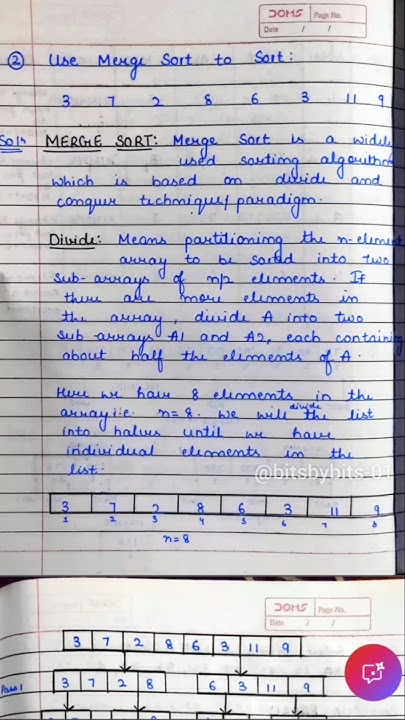 DOMS Page No.
Date / /
② Use Merge Sort to Sort:
3 7 2 8 6 3 11 9
Soln MERGE SORT: Merge Sort is a widely
used sorting algorithm
which is based on divide and
conquer technique/paradigm.
Divide: Means partitioning the n-element
array to be sorted into two
sub-arrays of n/2 elements. If
there are more elements in
the array, divide A into two
sub arrays A1 and A2, each containing
about half the elements of A.
Here we have 8 elements in the
array i.e. n=8. We will divide the list
into halves until we have
individual elements in the
list.
@bitsbybits_01
3 7 2 8 6 3 11 9
1 2 3 4 5 6 7 8
n=8
DOMS Page No.
Date / /
3 7 2 8 6 3 11 9
Pass 1 3 7 2 8 6 3 11 9